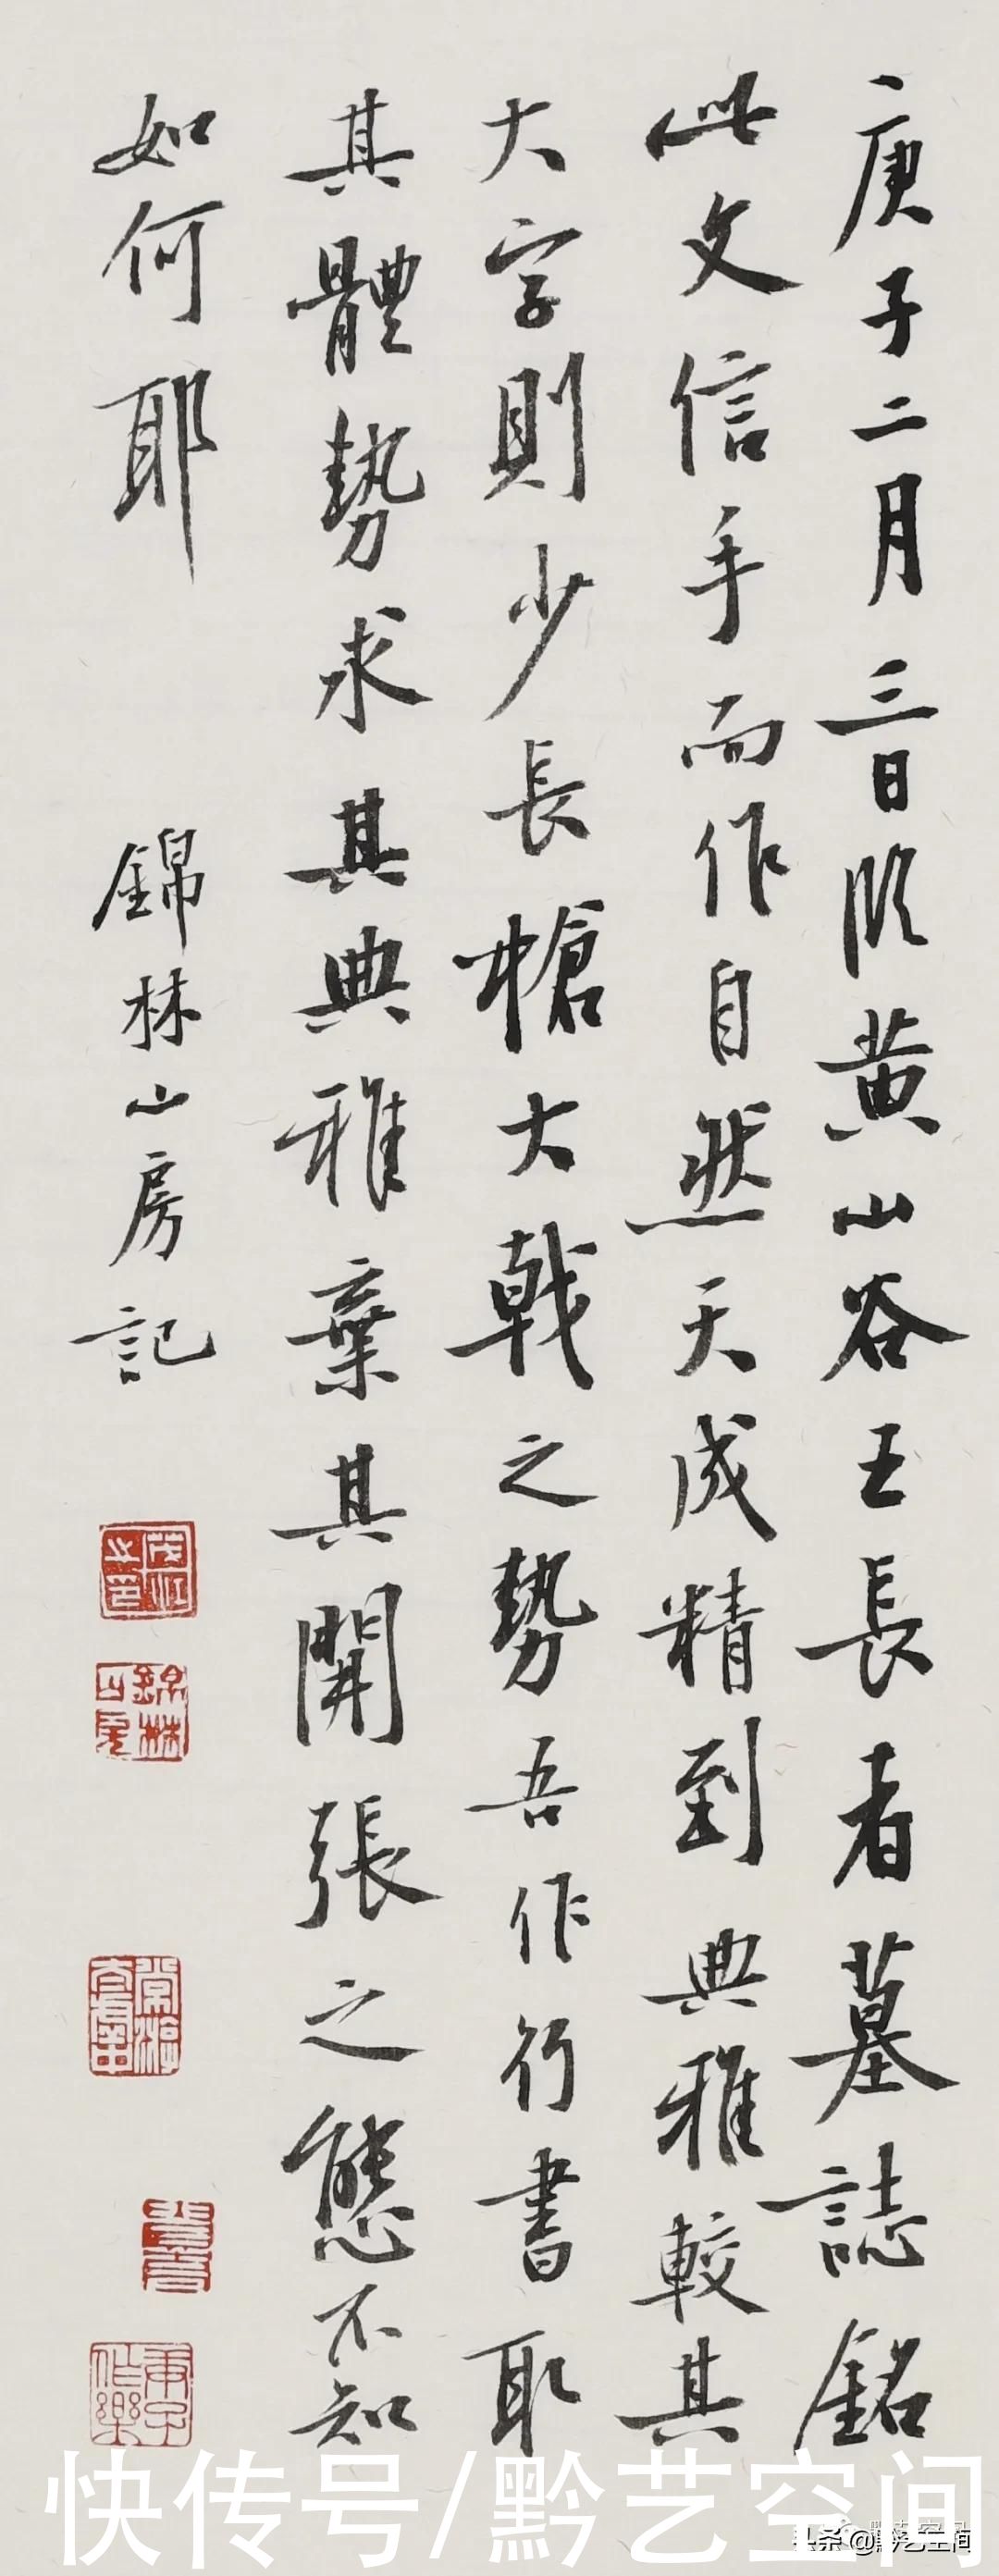 庚子二月三日临黄山谷王長者墓誌銘
此文信手而作自然天成精到典雅較其
大字則少長槍大戟之勢吾作行書取
其體勢求其典雅棄其開張之態不知
如何耶
錦林山房記
錦林山房
庚子作樂
快传号/黔艺空间
头条@黔艺空间